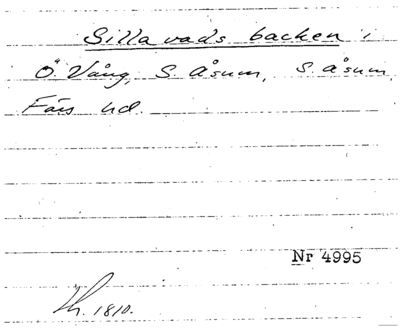 Silla vads backen i
Ö. Vång, S. Åsum, S. Åsum,
Färs hd.
Nr 4995
Th. 1810.